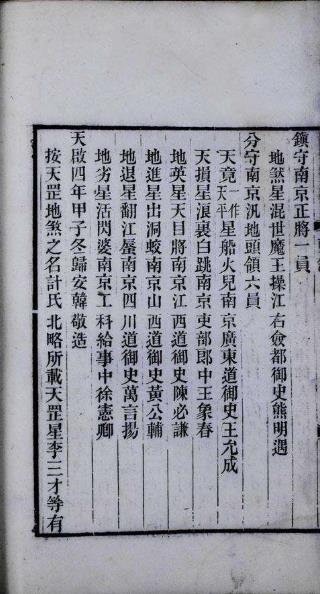 鎮守南京正將一員
地煞星混世魔王操江右僉都御史熊明遇
分守南京汛地頭領六員
天竟一作天平星船火兒南京廣東道御史王允成
天損星浪裏白跳南京吏部郎中王象春
地英星天目將南京江西道御史陳必謙
地進星出洞蛟南京山西道御史黃公輔
地退星翻江蜃南京四川道御史萬言揚
地劣星活閃婆南京工科給事中徐憲卿
天啟四年甲子冬歸安韓敬造
按天罡地煞之名計氏北略所載天罡星李三才等有